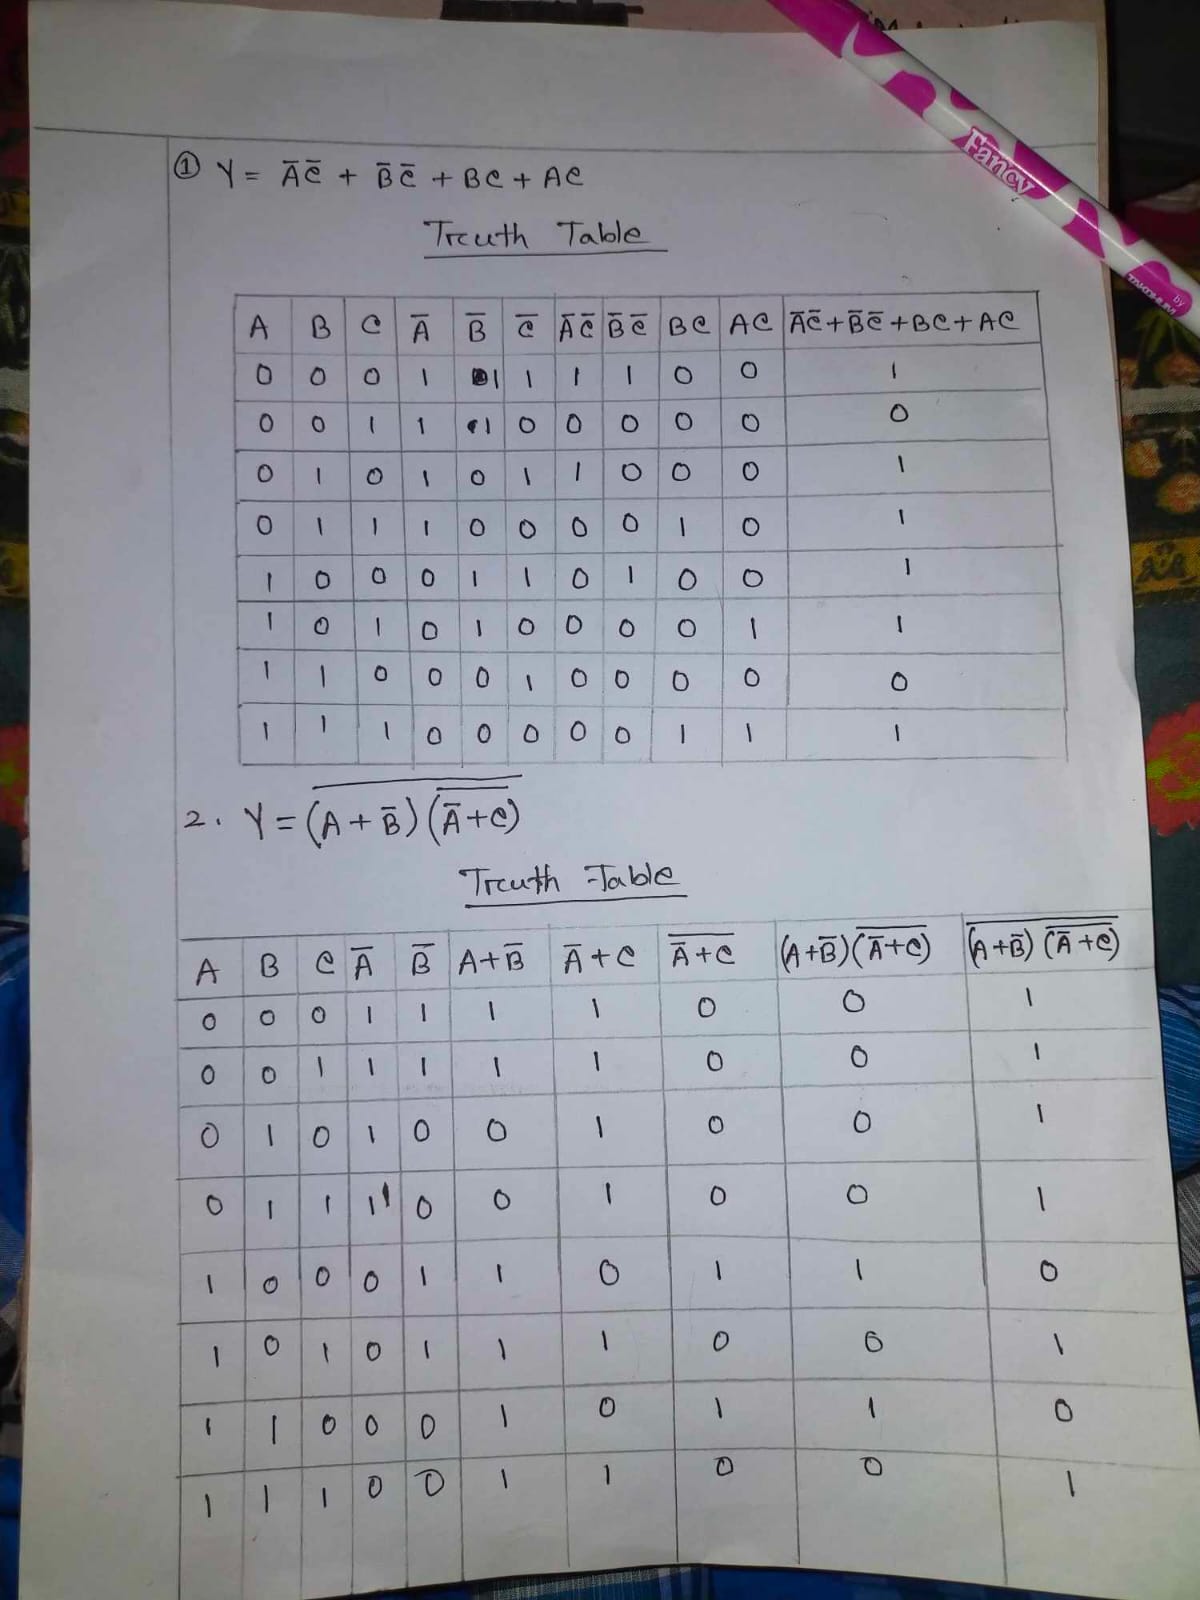 Fancy
by
① Y = A̅C̅ + B̅C̅ + BC + AC
Trcuth Table
A B C A̅ B̅ C̅ A̅C̅ B̅C̅ BC AC A̅C̅+B̅C̅+BC+AC
0 0 0 1 1 1 1 1 0 0 1
0 0 1 1 1 0 0 0 0 0 0
0 1 0 1 0 1 1 0 0 0 1
0 1 1 1 0 0 0 0 1 0 1
1 0 0 0 1 1 0 1 0 0 1
1 0 1 0 1 0 0 0 0 1 1
1 1 0 0 0 1 0 0 0 0 0
1 1 1 0 0 0 0 0 1 1 1
2. Y = \overline{(A+B̅)(\overline{A̅+C})}
Trcuth Table
A B C A̅ B̅ A+B̅ A̅+C \overline{A̅+C} (A+B̅)(\overline{A̅+C}) \overline{(A+B̅)(\overline{A̅+C})}
0 0 0 1 1 1 1 0 0 1
0 0 1 1 1 1 1 0 0 1
0 1 0 1 0 0 1 0 0 1
0 1 1 1 0 0 1 0 0 1
1 0 0 0 1 1 0 1 1 0
1 0 1 0 1 1 1 0 0 1
1 1 0 0 0 1 0 1 1 0
1 1 1 0 0 1 1 0 0 1